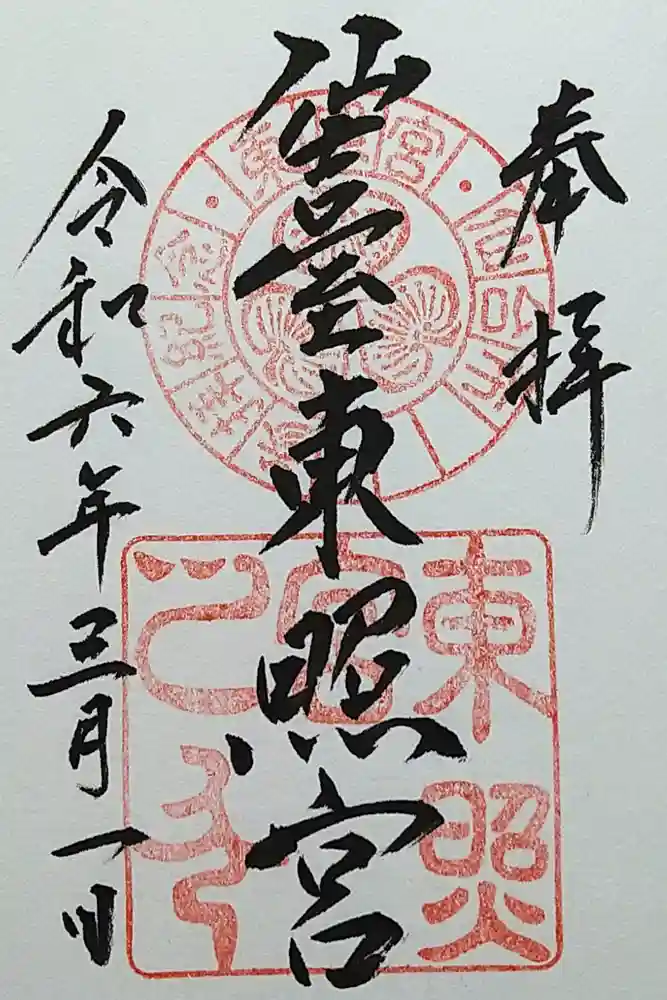 奉拝
仙臺東照宮
令和六年三月一日
東照宮